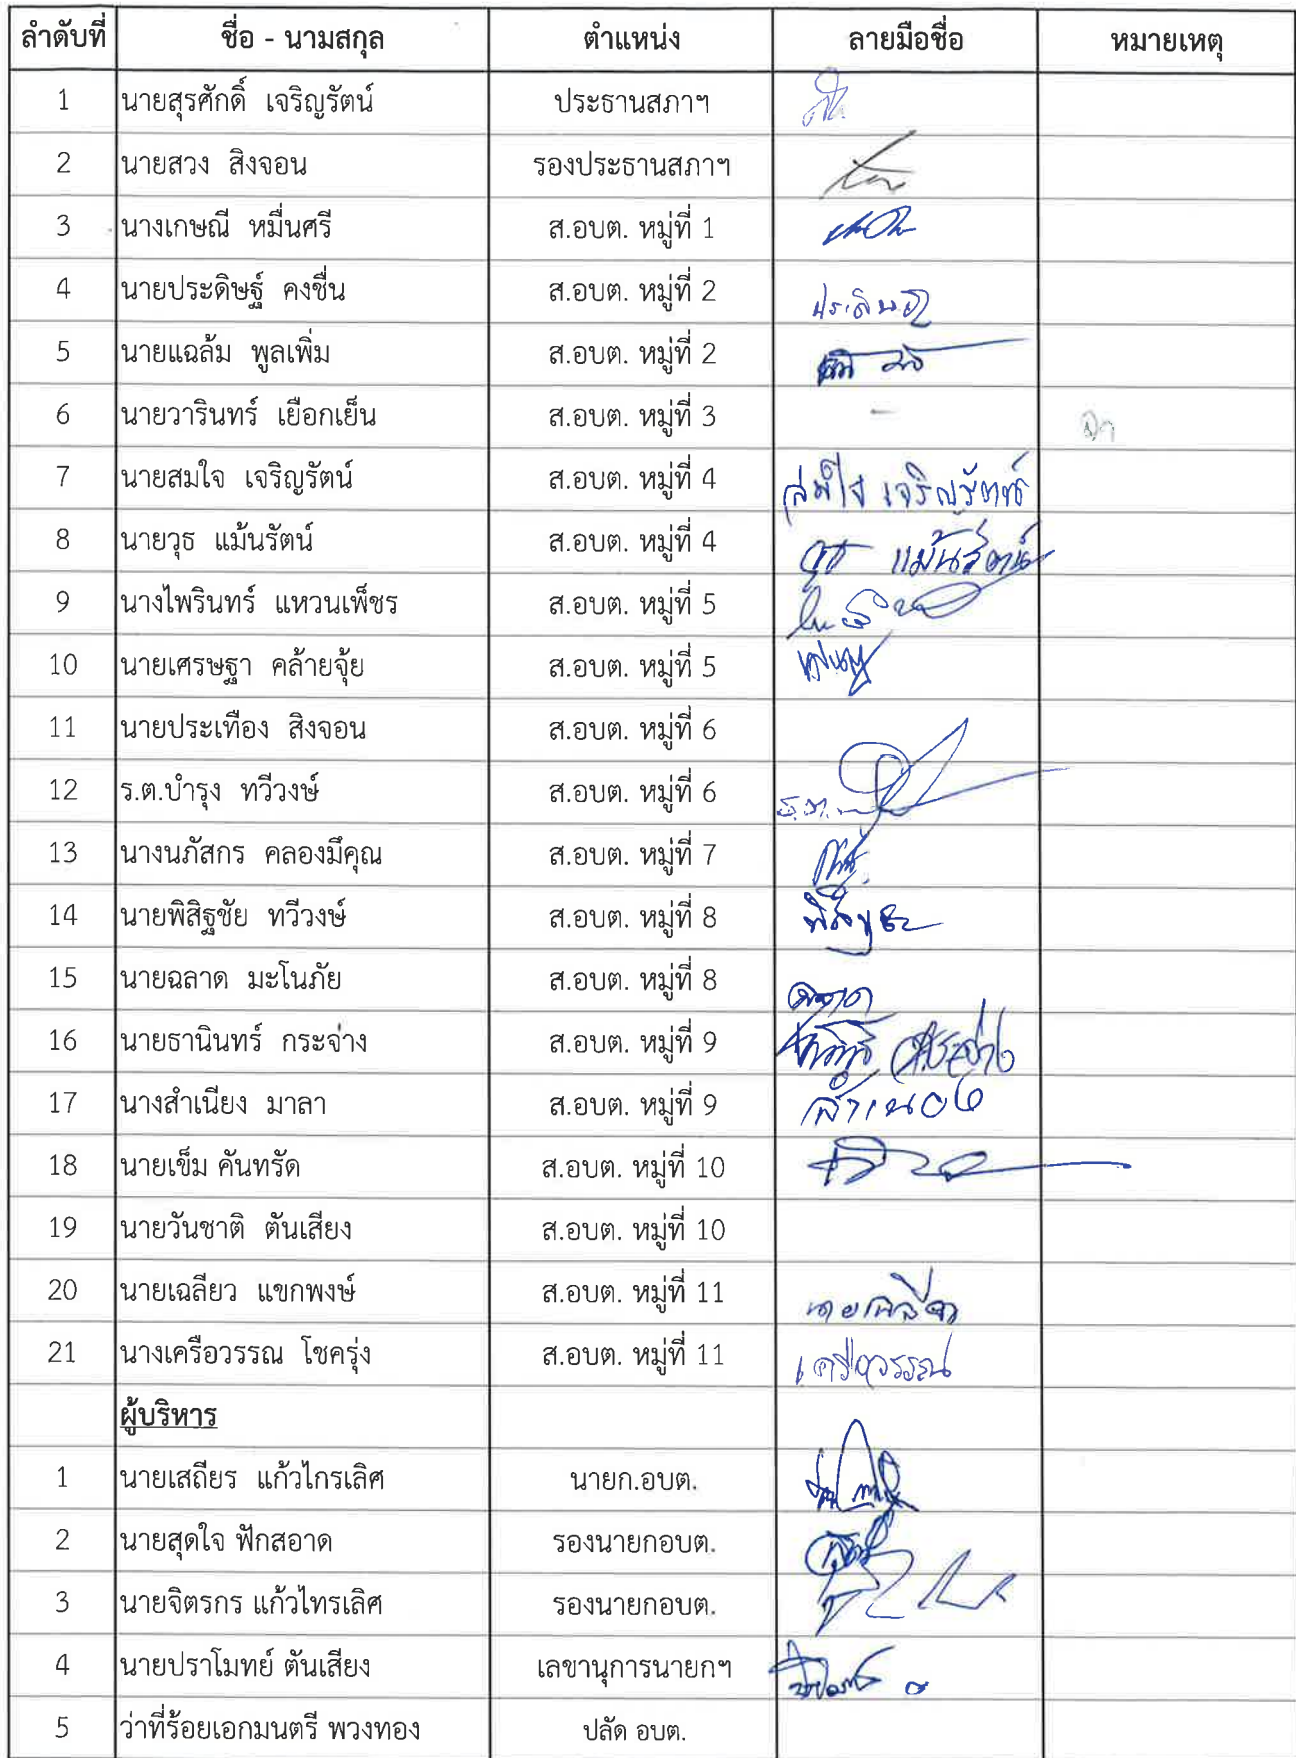 ลำดับที่ ชื่อ - นามสกุล ตำแหน่ง ลายมือชื่อ หมายเหตุ
1 นายสุรศักดิ์ เจริญรัตน์ ประธานสภาฯ
2 นายสวง สิงจอน รองประธานสภาฯ
3 นางเกษณี หมื่นศรี ส.อบต. หมู่ที่ 1
4 นายประดิษฐ์ คงชื่น ส.อบต. หมู่ที่ 2 ประดิษฐ์
5 นายแฉล้ม พูลเพิ่ม ส.อบต. หมู่ที่ 2
6 นายวารินทร์ เยือกเย็น ส.อบต. หมู่ที่ 3 - ลา
7 นายสมใจ เจริญรัตน์ ส.อบต. หมู่ที่ 4 สมใจ เจริญรัตน์
8 นายวุธ แม้นรัตน์ ส.อบต. หมู่ที่ 4 วุธ แม้นรัตน์
9 นางไพรินทร์ แหวนเพ็ชร ส.อบต. หมู่ที่ 5
10 นายเศรษฐา คล้ายจุ้ย ส.อบต. หมู่ที่ 5
11 นายประเทือง สิงจอน ส.อบต. หมู่ที่ 6
12 ร.ต.บำรุง ทวีวงษ์ ส.อบต. หมู่ที่ 6 ร.ต.
13 นางนภัสกร คลองมีคุณ ส.อบต. หมู่ที่ 7
14 นายพิสิฐชัย ทวีวงษ์ ส.อบต. หมู่ที่ 8
15 นายฉลาด มะโนภัย ส.อบต. หมู่ที่ 8 ฉลาด
16 นายธานินทร์ กระจ่าง ส.อบต. หมู่ที่ 9 ธานินทร์ กระจ่าง
17 นางสำเนียง มาลา ส.อบต. หมู่ที่ 9
18 นายเข็ม คันทรัด ส.อบต. หมู่ที่ 10
19 นายวันชาติ ตันเสียง ส.อบต. หมู่ที่ 10
20 นายเฉลียว แขกพงษ์ ส.อบต. หมู่ที่ 11 นายเฉลียว
21 นางเครือวรรณ โชครุ่ง ส.อบต. หมู่ที่ 11 เครือวรรณ
ผู้บริหาร
1 นายเสถียร แก้วไกรเลิศ นายก.อบต.
2 นายสุดใจ ฟักสอาด รองนายกอบต.
3 นายจิตรกร แก้วไทรเลิศ รองนายกอบต.
4 นายปราโมทย์ ตันเสียง เลขานุการนายกฯ
5 ว่าที่ร้อยเอกมนตรี พวงทอง ปลัด อบต.